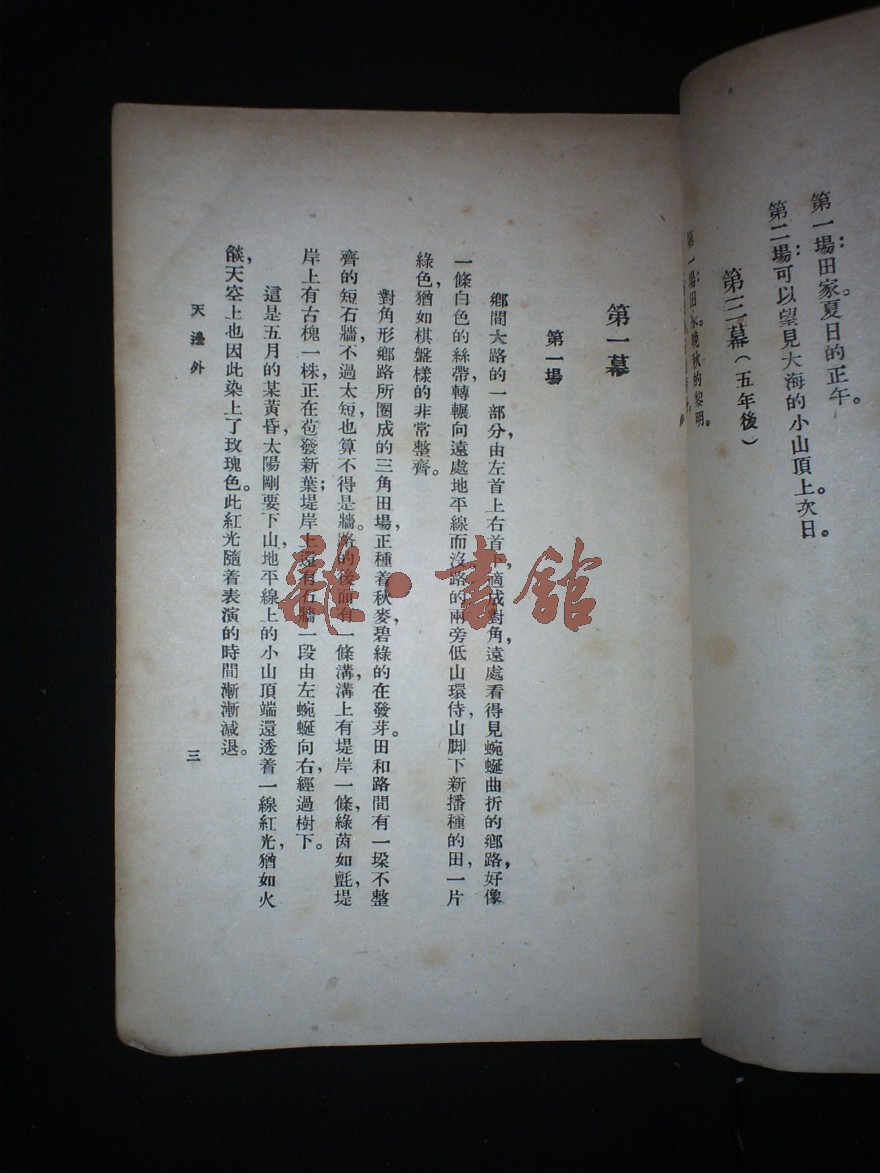 第一場：田家。夏日的正午。
第二場：可以望見大海的小山頂上。次日。
第三幕（五年後）
第一場：田家。晚秋的黎明。
第一幕
第一場
鄉間大路的一部分，由左首上右首下，適成對角，遠處看得見蜿蜒曲折的鄉路，好像
一條白色的絲帶轉輾向遠處地平線而沒。路的兩旁低山環侍，山脚下新播種的田，一片
綠色，猶如棋盤樣的非常整齊。
對角形鄉路所圈成的三角田場，正種着秋麥，碧綠的在發芽。田和路間有一垜不整
齊的短石牆，不過太短，也算不得是牆。路的後面有一條溝，溝上有堤岸一條，綠茵如氈，堤
岸上有古槐一株，正在苞發新葉；堤岸上還有石牆一段由左蜿蜒向右，經過樹下。
這是五月的某黃昏，太陽剛要下山，地平線上的小山頂端還透着一線紅光，猶如火
燄，天空上也因此染上了玫瑰色。此紅光隨着表演的時間漸漸減退。
天邊外
三
雜·書館